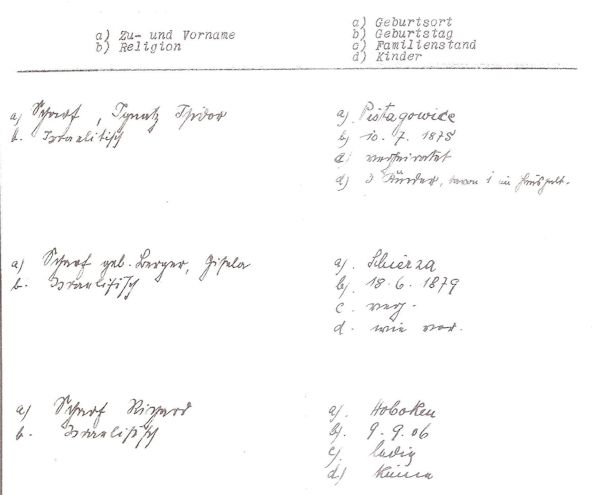 a) Zu- und Vorname
b) Religion
a) Geburtsort
b) Geburtstag
c) Familienstand
d) Kinder
a) Scharf, Ignatz Isidor
b. Israelitisch
a). Pistagowice
b) 10. 7. 1875
c) verheiratet
d) 3 Kinder, davon 1 im Haushalt.
a) Scharf geb. Berger, Gisela
b. Israelitisch
a). Schierza
b). 18. 6. 1879
c. verh.
d. wie vor.
a) Scharf Richard
b. Israelitisch
a). Hoboken
b). 9. 9. 06
c). ledig
d) keine